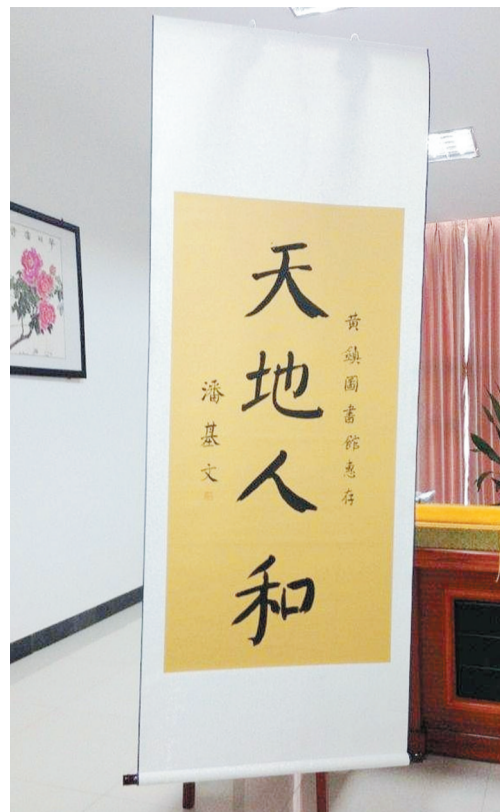 黄鎮圖書館惠存
天地人和
潘基文